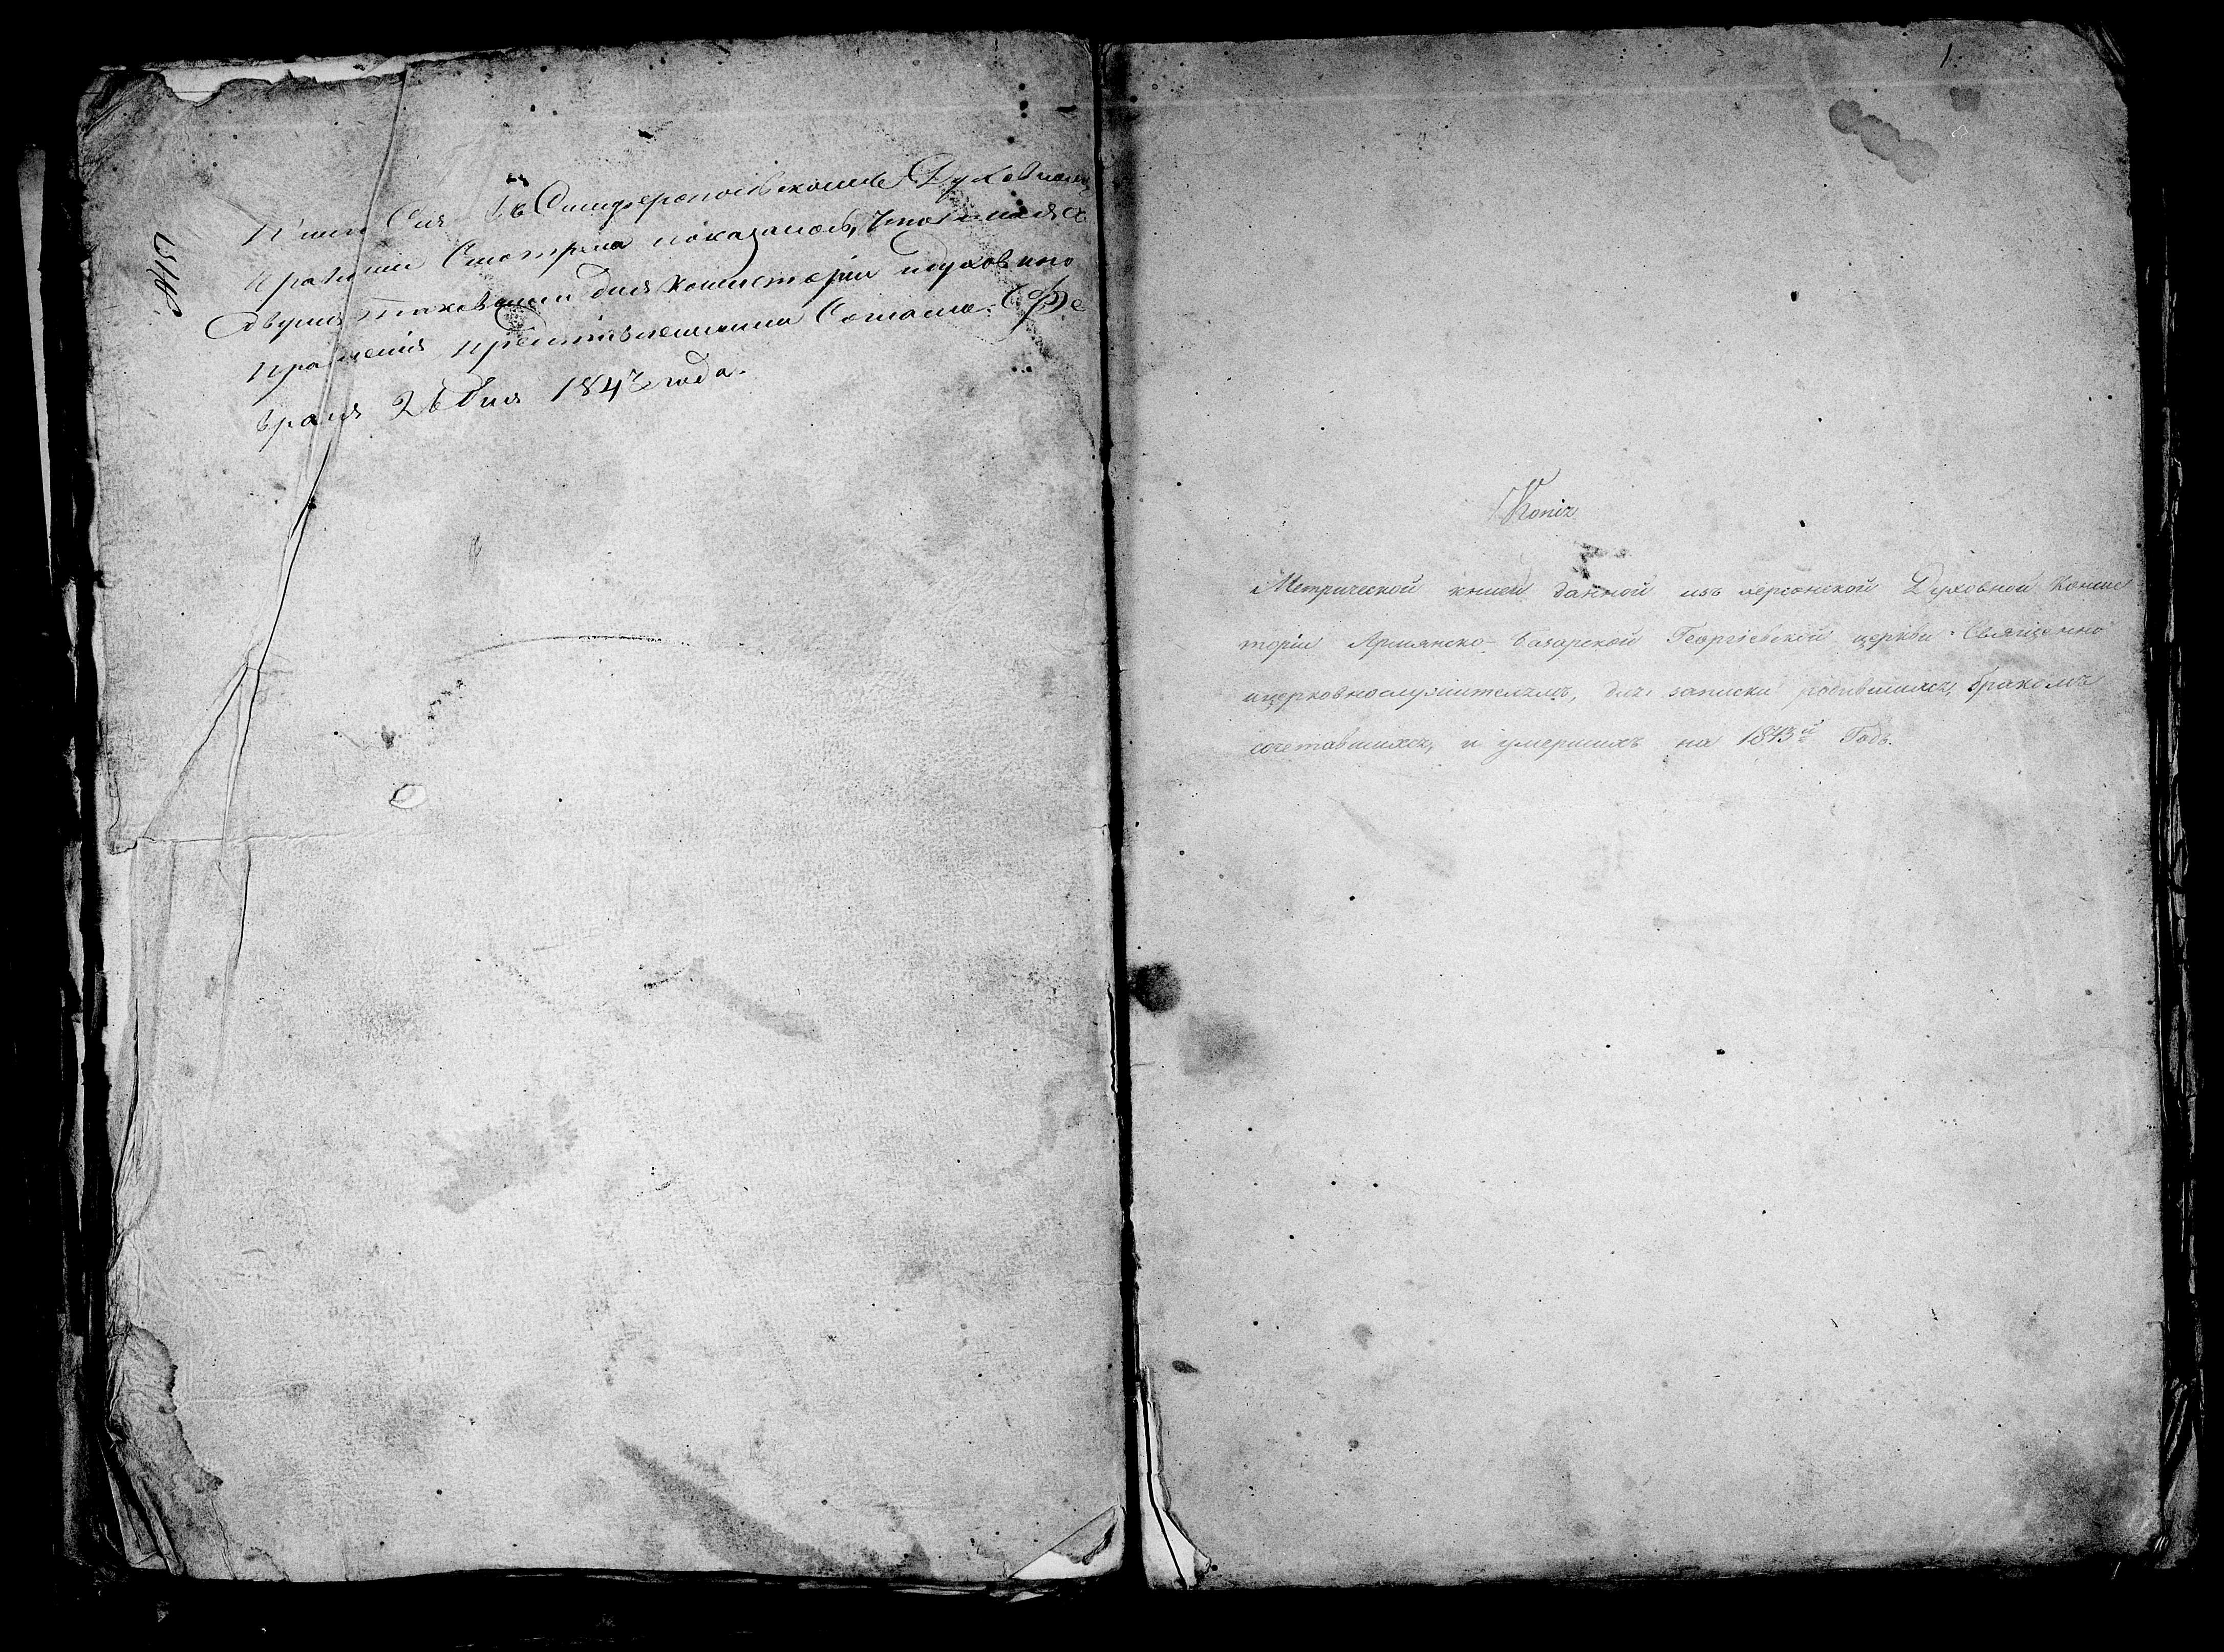 Книга Сия въ Симферопольскомъ Духовномъ
Правленіи Смотрена показалось, что
двумя таковыми для консисторіи и духовнаго
правленія представленными Согласна. Фе
враля 26 дня 1843 года.
1
Копія
Метрической книги данной изъ херсонской Духовной Консис
торіи Армянско-базарской Георгіевской церкви Священно
ицерковнослужителямъ, для записки родившихся, бракомъ
сочетавшихся, и умершихъ на 1843й Годъ.